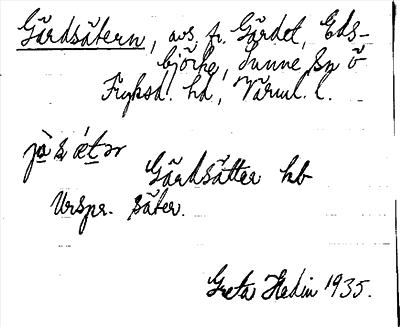 Gärdsätern, avs. fr. Gärdet, Eds-
björke, Sunne sn Ö
Fryksd. hd, Värml. l.
Gärdsätter hb
Urspr. säter.
Greta Hedin 1935.